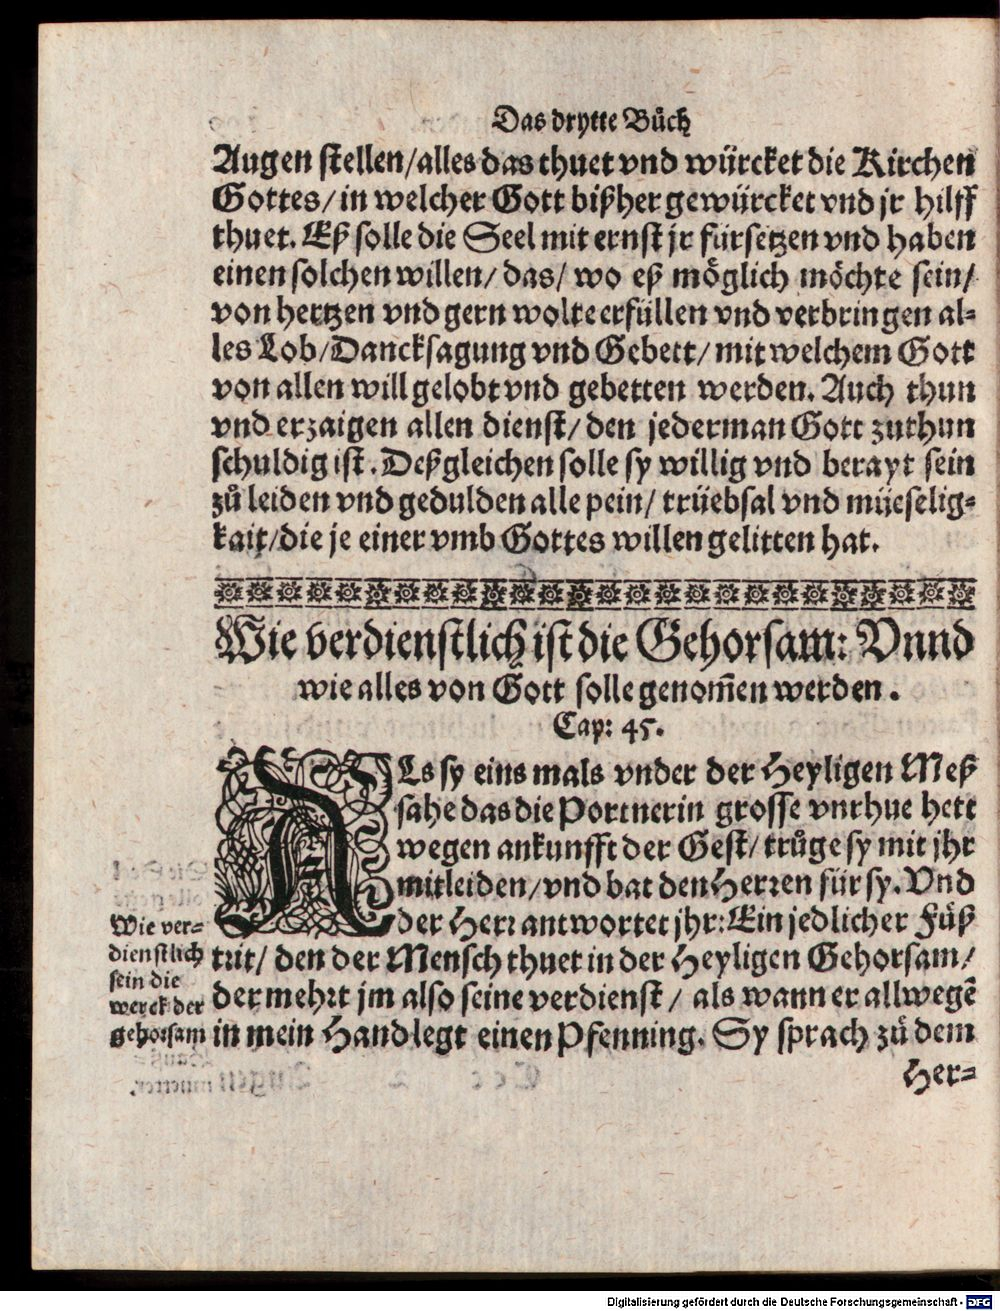 Das drytte Bůch
Augen stellen/alles das thuet vnd würcket die Kirchen
Gottes/in welcher Gott bißher gewürcket vnd jr hilff
thuet. Eß solle die Seel mit ernst jr fürsetzen vnd haben
einen solchen willen/ das/ wo eß möglich möchte sein/
von hertzen vnd gern wolte erfüllen vnd verbringen al-
les Lob/Dancksagung vnd Gebett/ mit welchem Gott
von allen will gelobt vnd gebetten werden. Auch thun
vnd erzaigen allen dienst/ den jederman Gott zuthun
schuldig ist. Deßgleichen solle sy willig vnd berayt sein
zů leiden vnd gedulden alle pein/ trüebsal vnd müeselig-
kait/die je einer vmb Gottes willen gelitten hat.
Wie verdienstlich ist die Gehorsam: Vnnd
wie alles von Gott solle genom̃en werden.
Cap: 45.
ALs sy eins mals vnder der Heyligen Meß
sahe das die Portnerin grosse vnrhue hett
wegen ankunfft der Gest/ trůge sy mit jhr
mitleiden/vnd bat den Herren für sy. Vnd
der Herr antwortet jhr: Ein jedlicher Fůß
trit/ den der Mensch thuet in der Heyligen Gehorsam/
der mehrt jm also seine verdienst/ als wann er allwegē
in mein Hand legt einen Pfenning. Sy sprach zů dem
Wie ver-
dienstlich
sein die
werck der
gehorsam
Her-
Digitalisierung gefördert durch die Deutsche Forschungsgemeinschaft - DFG